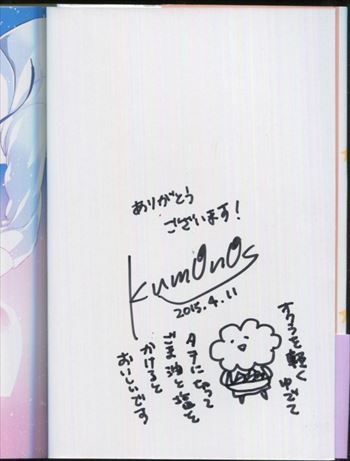 ありがとう
ございます!
KumOnOs
2015.4.11
オクラを軽く
ゆでて
タテに切って
ごま油と塩を
かけると
おいしいです